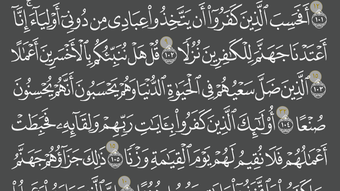 أَفَحَسِبَ ٱلَّذِينَ كَفَرُوٓا۟ أَن يَتَّخِذُوا۟ عِبَادِى مِن دُونِىٓ أَوْلِيَآءَ ۚ إِنَّآ
أَعْتَدْنَا جَهَنَّمَ لِلْكَٰفِرِينَ نُزُلًا ١٠٢ قُلْ هَلْ نُنَبِّئُكُم بِٱلْأَخْسَرِينَ أَعْمَٰلًا
١٠٣ ٱلَّذِينَ ضَلَّ سَعْيُهُمْ فِى ٱلْحَيَوٰةِ ٱلدُّنْيَا وَهُمْ يَحْسَبُونَ أَنَّهُمْ يُحْسِنُونَ
صُنْعًا ١٠٤ أُو۟لَٰٓئِكَ ٱلَّذِينَ كَفَرُوا۟ بِـَٔايَٰتِ رَبِّهِمْ وَلِقَآئِهِۦ فَحَبِطَتْ
أَعْمَٰلُهُمْ فَلَا نُقِيمُ لَهُمْ يَوْمَ ٱلْقِيَٰمَةِ وَزْنًا ١٠٥ ذَٰلِكَ جَزَآؤُهُمْ جَهَنَّمُ